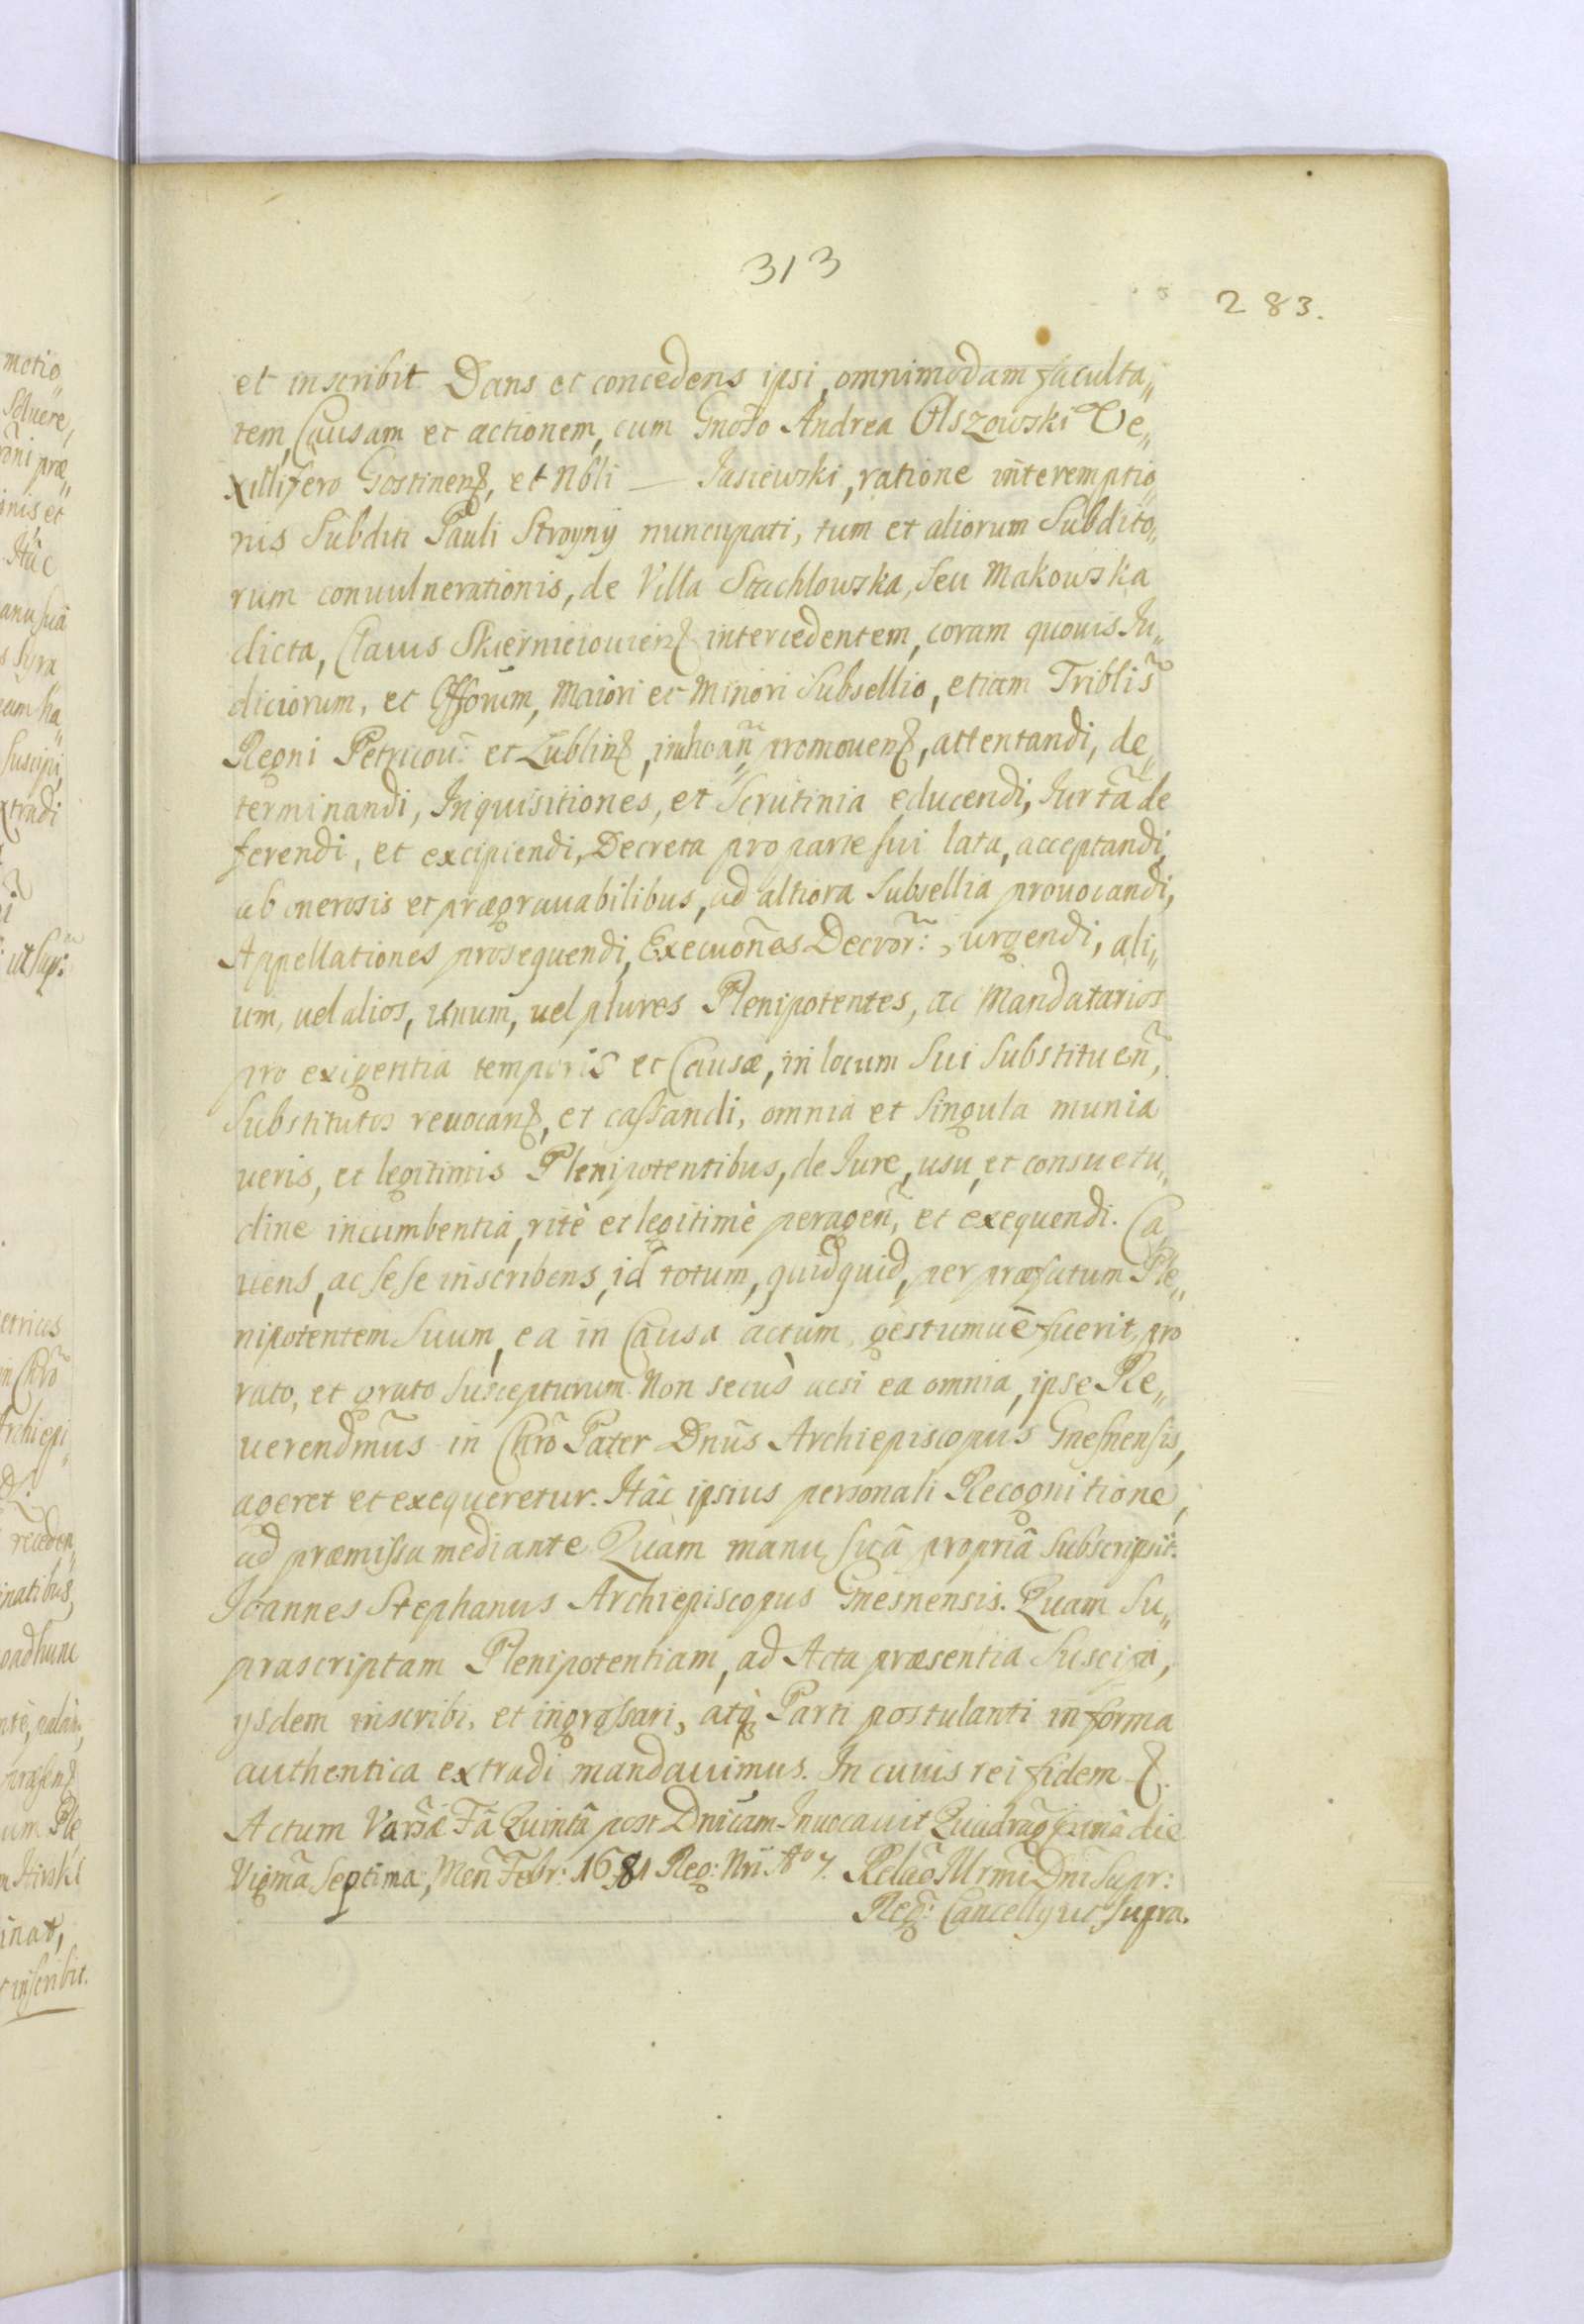 313
283.
et inscribit Dans et concedens ipsi, omnimodam faculta„
tem, Causam et actionem, cum Gnoso Andrea Olszowski Ve„
xillifero Gostinen, et Nbli — Jasiewski, ratione interemptio„
nis Subditi Pauli Stroyny nuncupati, tum et aliorum Subdito„
rum conuulnerationis, de Villa Stachlowska, seu Makowska
dicta, Clauis Skierniewicen intercedentem, coram quouis Iu„
diciorum, et Offorum, Maiori et Minori Subsellio, etiam Triblis
Regni Petricou: et Lublin, inchoan, promouen, attentandi, de„
terminandi, Inquisitiones, et Scrutinia educendi, Iurta de
ferendi, et excipiendi, Decreta pro parte sui lata, acceptandi,
ab onerosis et prægrauabilibus, ad altiora Subsellia prouocandi,
Appellationes prosequendi, Execuones Decror:, urgendi, ali„
um, uel alios, unum, uel plures Plenipotentes, ac Mandatarios
pro exigentia temporis et Causæ, in locum Sui Substituen,
Substitutos reuocan, et cassandi, omnia et Singula munia
ueris, et legitimis Plenipotentibus, de Iure, usu, et consuetu„
dine incumbentia, ritè et legitimè peragen, et exequendi. Ca„
uens, ac sese inscribens, id totum, quidquid, per præfatum Ple„
nipotentem Suum, ea in Causa actum gestumuè fuerit, pro
rato, et grato Suscepturum Non secùs acsi ea omnia, ipse Re„
uerendmus in Chro Pater Dnus Archiepiscopus Gnesnensis,
ageret et exequeretur. Hâc ipsius personali Recognitione,
ad præmissa mediante Quàm manu suâ propriâ Subscripsit.
Ioannes Stephanus Archiepiscopus Gnesnensis. Quam Su„
prascriptam Plenipotentiam, ad Acta præsentia Suscipi,
ysdem inscribi, et ingrossari, atq Parti postulanti in forma
authentica extradi mandauimus. In cuius rei fidem
Actum Varsæ Fâ Quintâ post Dnicam Inuocauit Quadragesimâ die
Vigma Septima, Men Febr: 1681 Reg: Nri Aº 7. Relao Illrmi Dni Supr:
Reg: Cancellÿ ut supra.